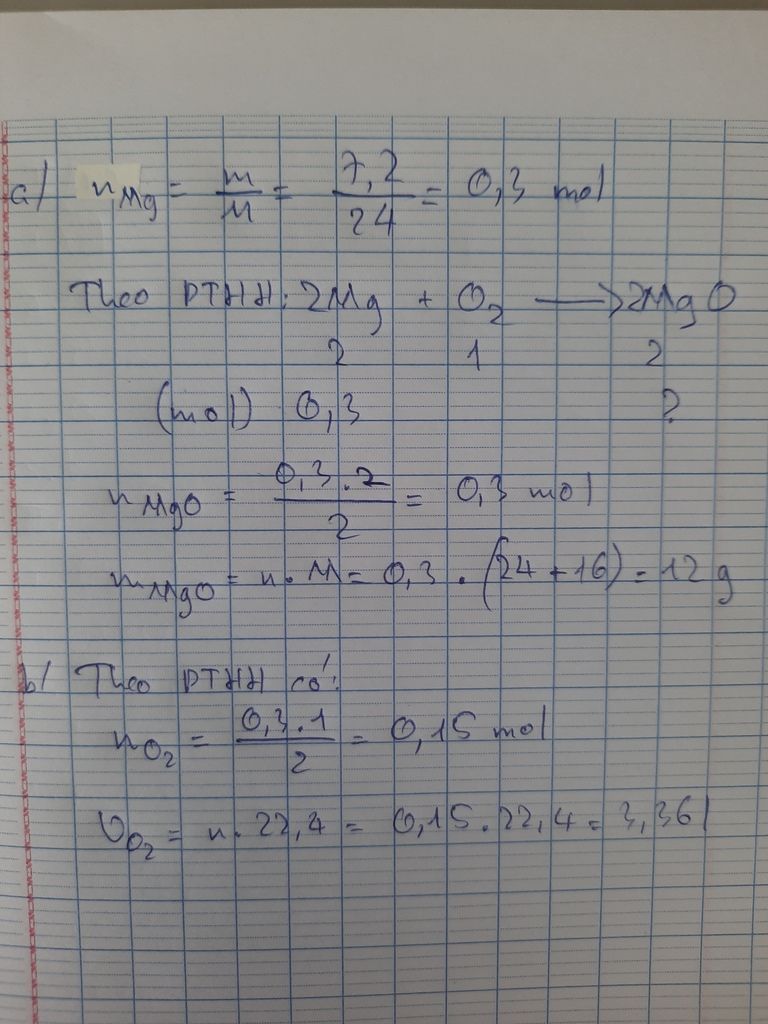 a/ nMg = m/M = 7,2/24 = 0,3 mol
Theo PTHH: 2Mg + O2 → 2MgO
2 1 2
(mol) 0,3 ?
nMgO = 0,3.2/2 = 0,3 mol
mMgO = n.M = 0,3 . (24 + 16) = 12 g
b/ Theo PTHH có:
nO2 = 0,3.1/2 = 0,15 mol
VO2 = n. 22,4 = 0,15.22,4 = 3,36 l